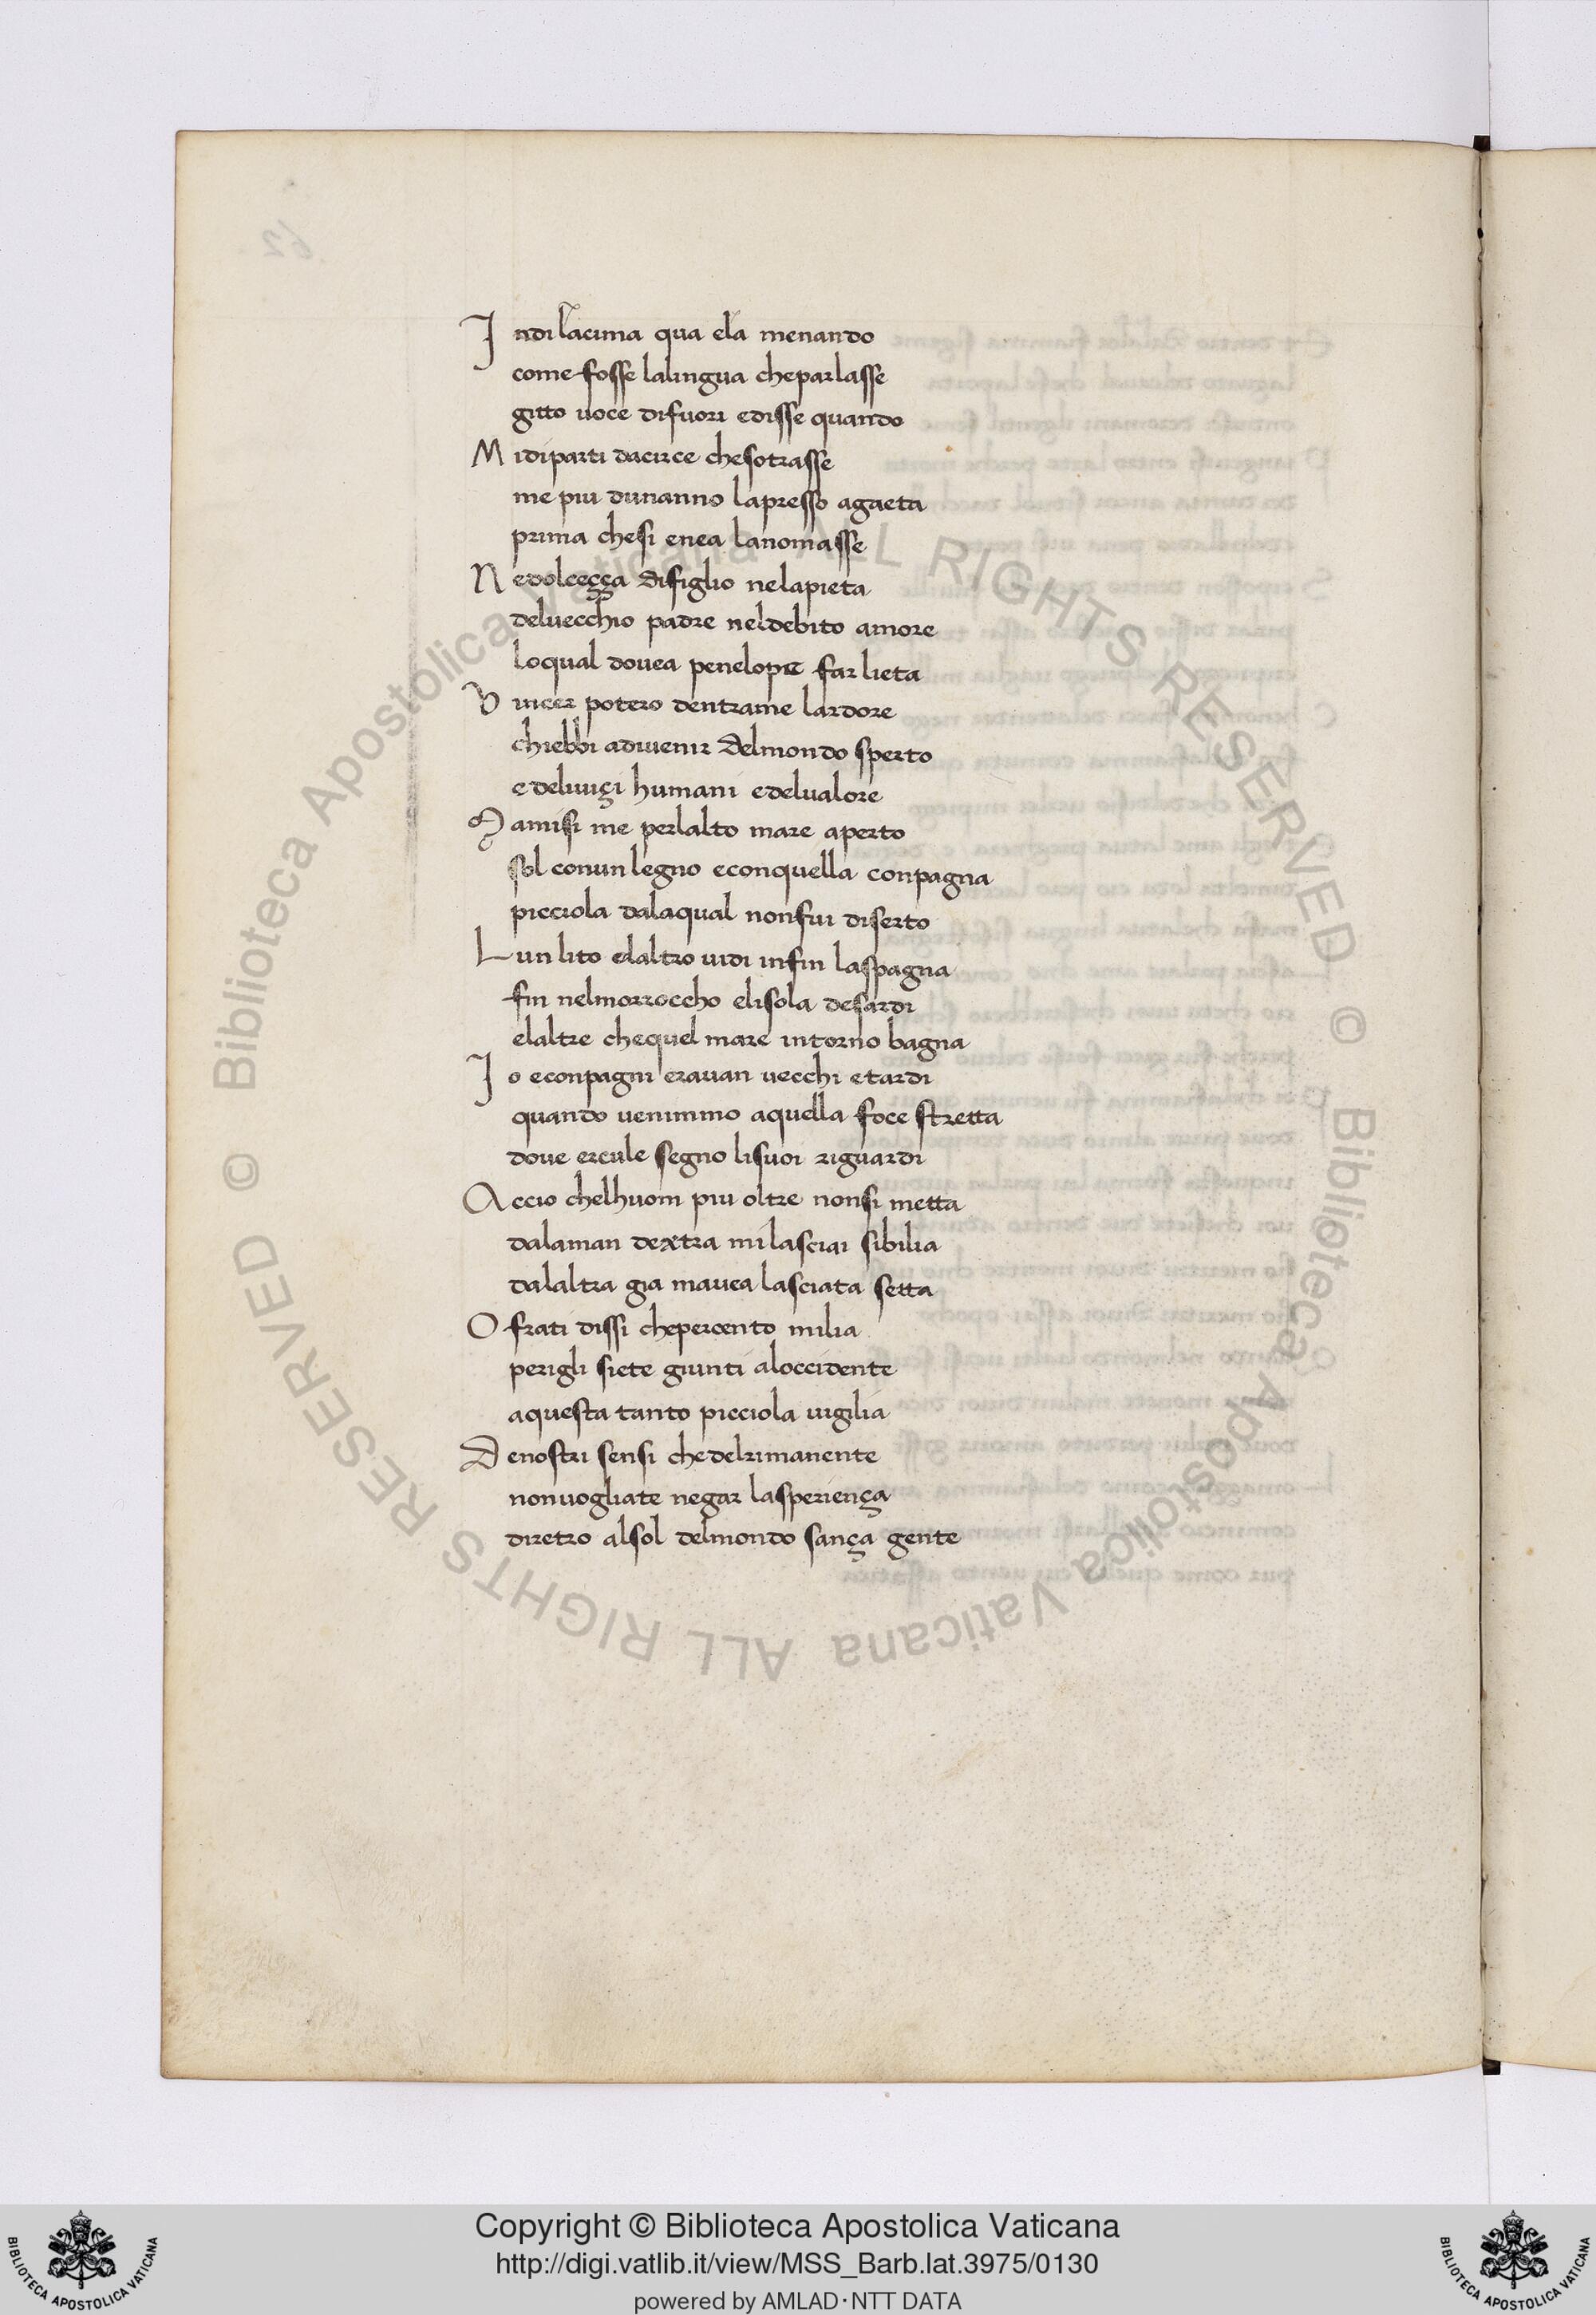 Indi lacima qua ela menando
come fosse lalingua cheparlasse
gitto uoce difuori edisse quando
Midiparti dacirce chesotrasse
me piu dunanno lapresso agaeta
prima chesi enea lanomasse
Nedolceçça difiglio nelapieta
deluecchio padre neldebito amore
loqual douea penelopie far lieta
Vincer potero dentrame lardore
chiebbi adiuenir delmondo sperto
e deliuiçi humani edelualore
Mamisi me perlalto mare aperto
sol conun legno econquella conpagna
picciola dalaqual nonfui diserto
Lun lito elaltro uidi infin laspagna
fin nelmorroccho elisola desardi
elaltre chequel mare intorno bagna
Io econpagni erauan uecchi etardi
quando uenimmo aquella foce stretta
doue ercule segno lisuoi riguardi
Accio chelhuom piu oltre nonsi metta
dalaman dextra milasciai sibilia
dalaltra gia mauea lasciata setta
O frati dissi chepercento milia
perigli siete giunti aloccidente
aquesta tanto picciola uigilia
Denostri sensi chedelrimanente
nonuogliate negar lasperiença
diretro alsol delmondo sança gente
© Biblioteca Apostolica Vaticana ALL RIGHTS RESERVED © Biblioteca Apostolica Vaticana ALL RIGHTS RESERVED
Copyright © Biblioteca Apostolica Vaticana
http://digi.vatlib.it/view/MSS_Barb.lat.3975/0130
powered by AMLAD·NTT DATA
BIBLIOTECA APOSTOLICA VATICANA
BIBLIOTECA APOSTOLICA VATICANA